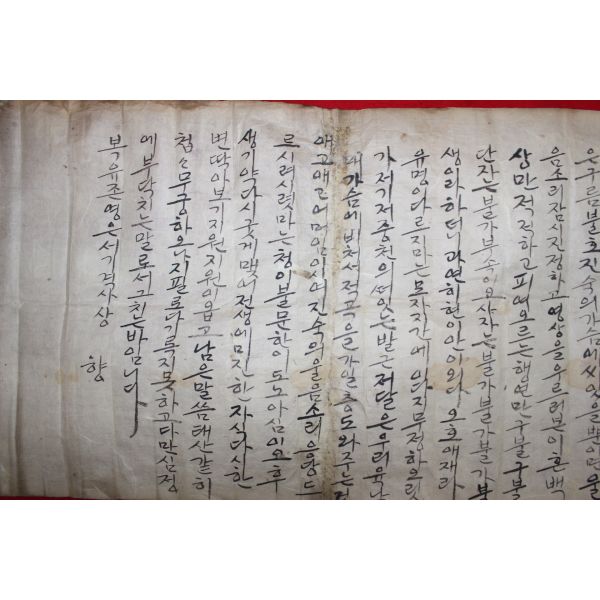 은구름불호진숙의가슴에씨있을뿐이면울
음소리잠시진정하고영상을우러러본이혼백
상만적적하고피여오르는행연만구불구불
단잔는불가부속이요사자는불가불가불가봉
생이라하더니과연허헌이안이외다오호애재라
유명이다르지마는모자간에이다지무정하오릿
가저기저중천의써잇는발근저달은우리육남
매가슴에비처서적곡을가일층도와주는
애고애고어머아이시여진숙의울음소리은왕드
르시려시렷마는청이불문하이도노아심이오후
생기약다시굿게맷어전생에미진한자식다시한
번따아부기지원지원이읍고남은말씀태산갓히
첩첩무궁하오나지필로다기록지못하고다만심정
에부닥치는말로써그치는바임니다
복유존영은서기격사상
향